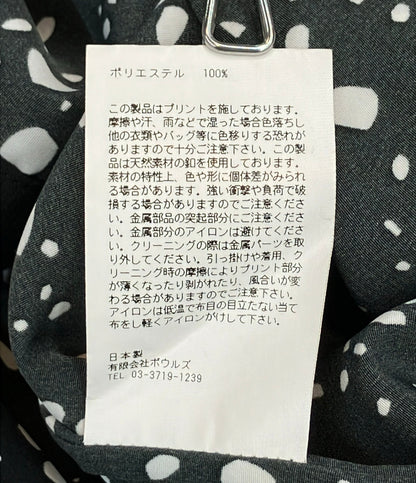 ポリエステル　100%
この製品はプリントを施しております。
摩擦や汗、雨などで湿った場合色落ちし
他の衣類やバッグ等に色移りする恐れが
ありますので十分ご注意下さい。この製
品は天然素材の釦を使用しております。
素材の特性上、色や形に個体差がみられ
る場合があります。強い衝撃や負荷で破
損する場合がありますのでご注意くださ
い。金属部品の突起部分にご注意くださ
い。金属部分のアイロンは避けてくださ
い。クリーニングの際は金属パーツを取
り外してください。引っ掛けや着用、ク
リーニング時の摩擦によりプリント部分
が薄くなったり剥がれたり、風合いが変
わる場合がありますのでご注意下さい。
アイロンは低温で布目の目立たない当て
布をし軽くアイロンがけして下さい。
日本製
有限会社ボウルズ
TEL 03-3719-1239